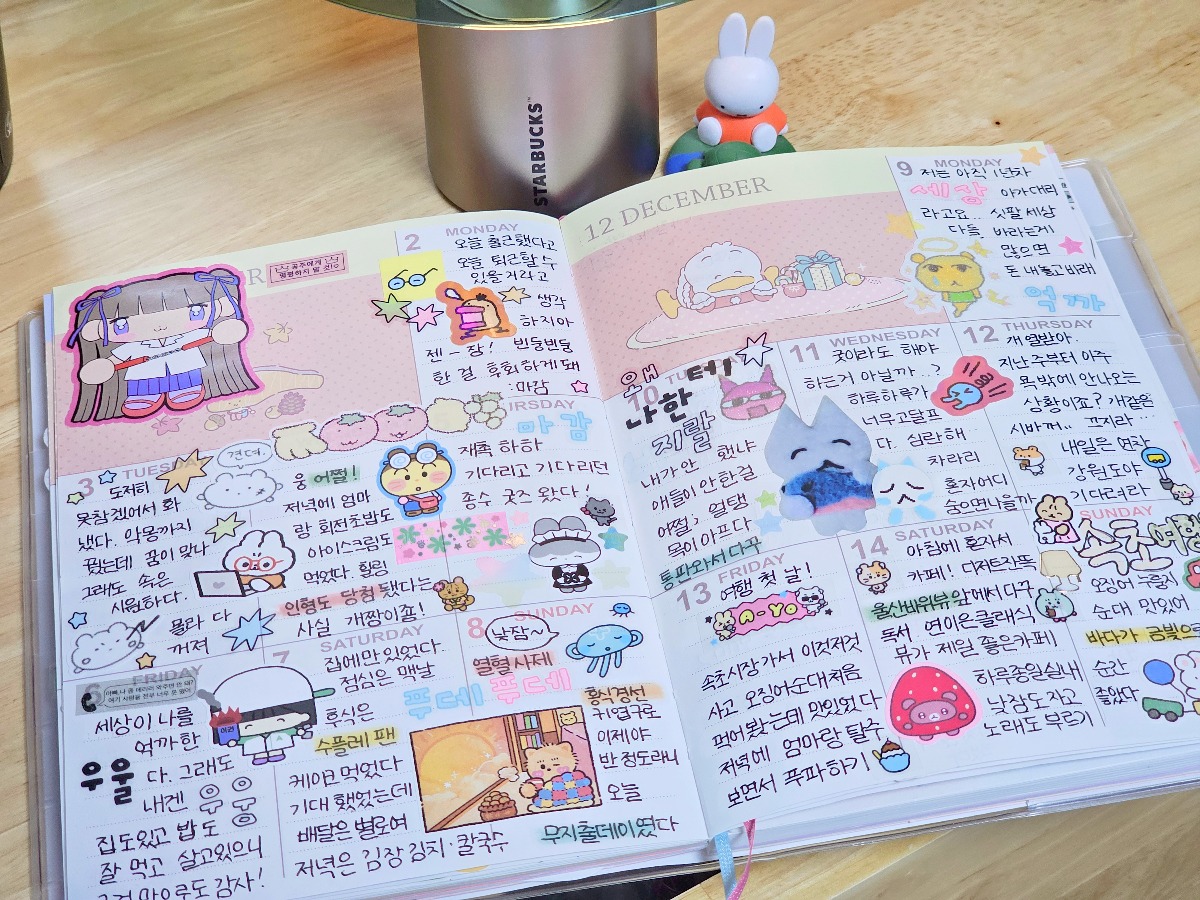 STARBUCKS
공주에게
명령하지 말 것!
2 MONDAY
오늘 출근했다고
오늘 퇴근할 수
있을거라고
생각
하지마
젠-장! 빈둥빈둥
한 걸 후회하게 돼
:마감
3 TUESDAY
도저히
못참겠어서 화
냈다. 악몽까지
꿨는데 꿈이 맞나
그래도 속은
시원하다.
몰라 다
꺼져
견뎌.
웅 어쩔!
저녁에 엄마
랑 회전초밥도
아이스크림도
먹었다. 힐링
인형도 당첨 됐다는
사실 개짱이죱!
마감
재촉 하하
기다리고 기다리던
종수 굿즈 왔다!
FRIDAY
세상이 나를
억까한
우울 다. 그래도
내겐
집도있고 밥도
잘 먹고 살고있으니
그걸 만으로도 감사!
7 SATURDAY
집에만 있었다.
점심은 맥날
후식은
수플레 팬
케이크 먹었다
기대했었는데
배달은 별로여
저녁은 김장김치·칼국수
8 SUNDAY
낮잠~
열혈사제
푸데푸데
황식경선
귀엽구로
이제야
반 정도라니
오늘
무지출데이였다
12 DECEMBER
9 MONDAY
저는 아직 1년차
세상 아가대리
라고요.. 싯팔세상
다들 바라는게
많으면
돈 내놓고바래
억까
10 TU
왜
나한테
지랄
내가 안 했냐
애들이 안한걸
어쩔, 열탱
목이아프다
통판와서다꾸
11 WEDNESDAY
굿이라도 해야
하는거 아닐까...?
하루하루가
너무고달프
다. 심란해
차라리
혼자어디
숨으면나을까
12 THURSDAY
개열받아.
지난주부터 아주
쪽박에 안나오는
상황이죠? 개같은
시바꺼.. 끄지라
내일은 연차
강원도야
기다려라
13 FRIDAY
여행 첫 날!
A-YO
속초시장가서 이것저것
사고 오징어순대처음
먹어봤는데 맛있었다
저녁에 엄마랑 탈주
보면서 푸파하기
14 SATURDAY
아침에 혼자서
카페! 디저트잔뜩
울산바위뷰 앞에서다꾸
독서 연이은클래식
뷰가 제일 좋은카페
하루종일실내
낮잠도자고
노래도부르기
SUNDAY
속초여행
오징어누룽지
순대 맛있어
바다가 금빛으로
순간
좋았다